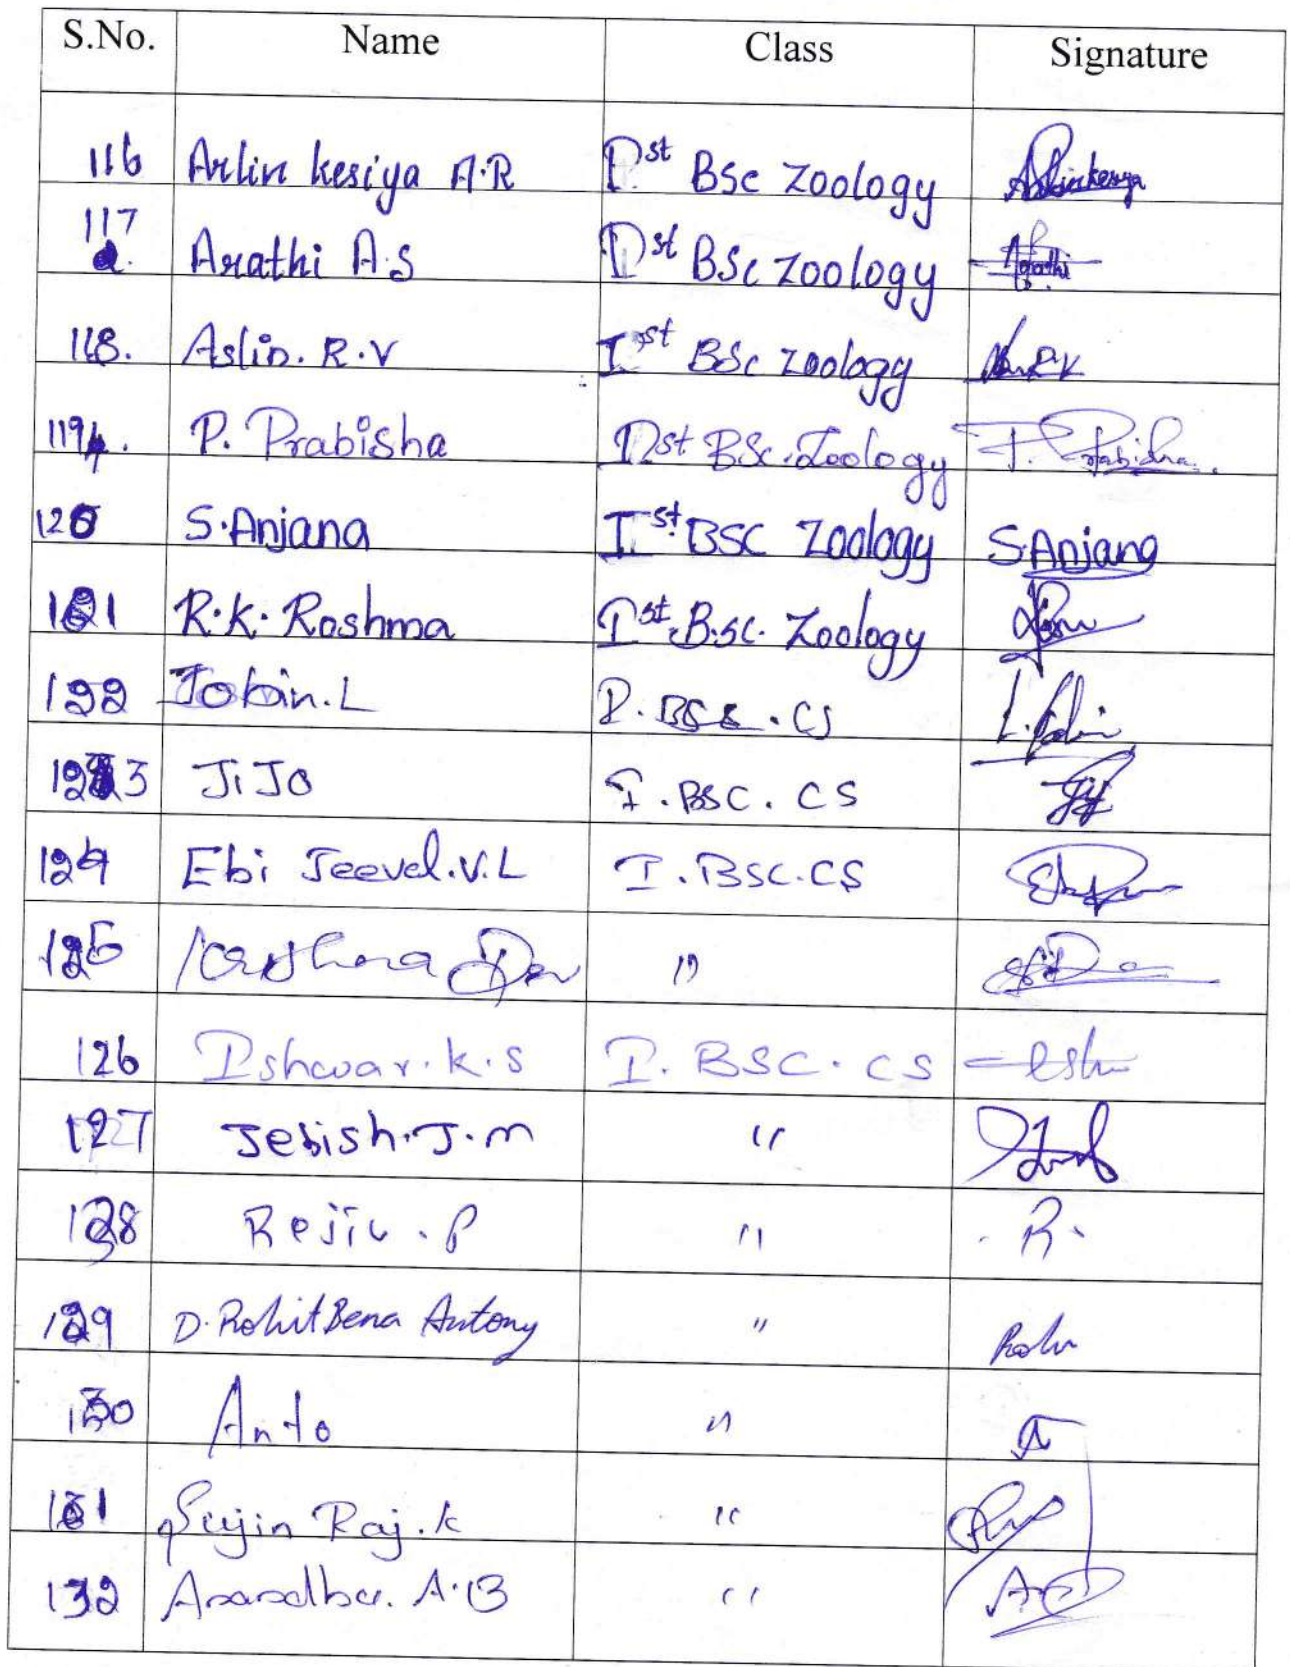 S.No. Name Class Signature
116 Arlin kesiya A.R Ist BSc Zoology Arlinkesiya
117 Arathi A.S Ist BSc Zoology Arathi
118. Aslin. R.V Ist BSc Zoology
119. P. Prabisha Ist BSc. Zoology P. Prabisha
120 S.Anjana Ist BSC Zoology S.Anjana
121 R.K. Roshma Ist B.sc. Zoology
122 Jobin.L I. BSc. CS L. Jobin
123 JiJo I. BSC. CS
124 Ebi Jeevel.V.L I. BSC.CS
125 "
126 Ishwar.k.s I. BSC. CS
127 Jebish.J.m "
128 Rejiu . P " R.
129 D. Rohit Bena Antony "
130 Anto " A
131 Sujin Raj.k "
132 A.B "